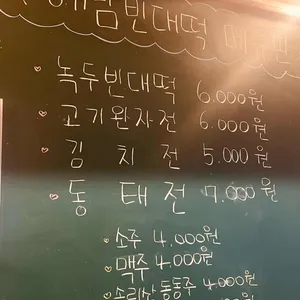 빈대떡
녹두빈대떡 6.000원
고기완자전 6.000원
김치전 5.000원
동태전 7.000원
소주 4.000원
맥주 4.000원
동동주 4.000원